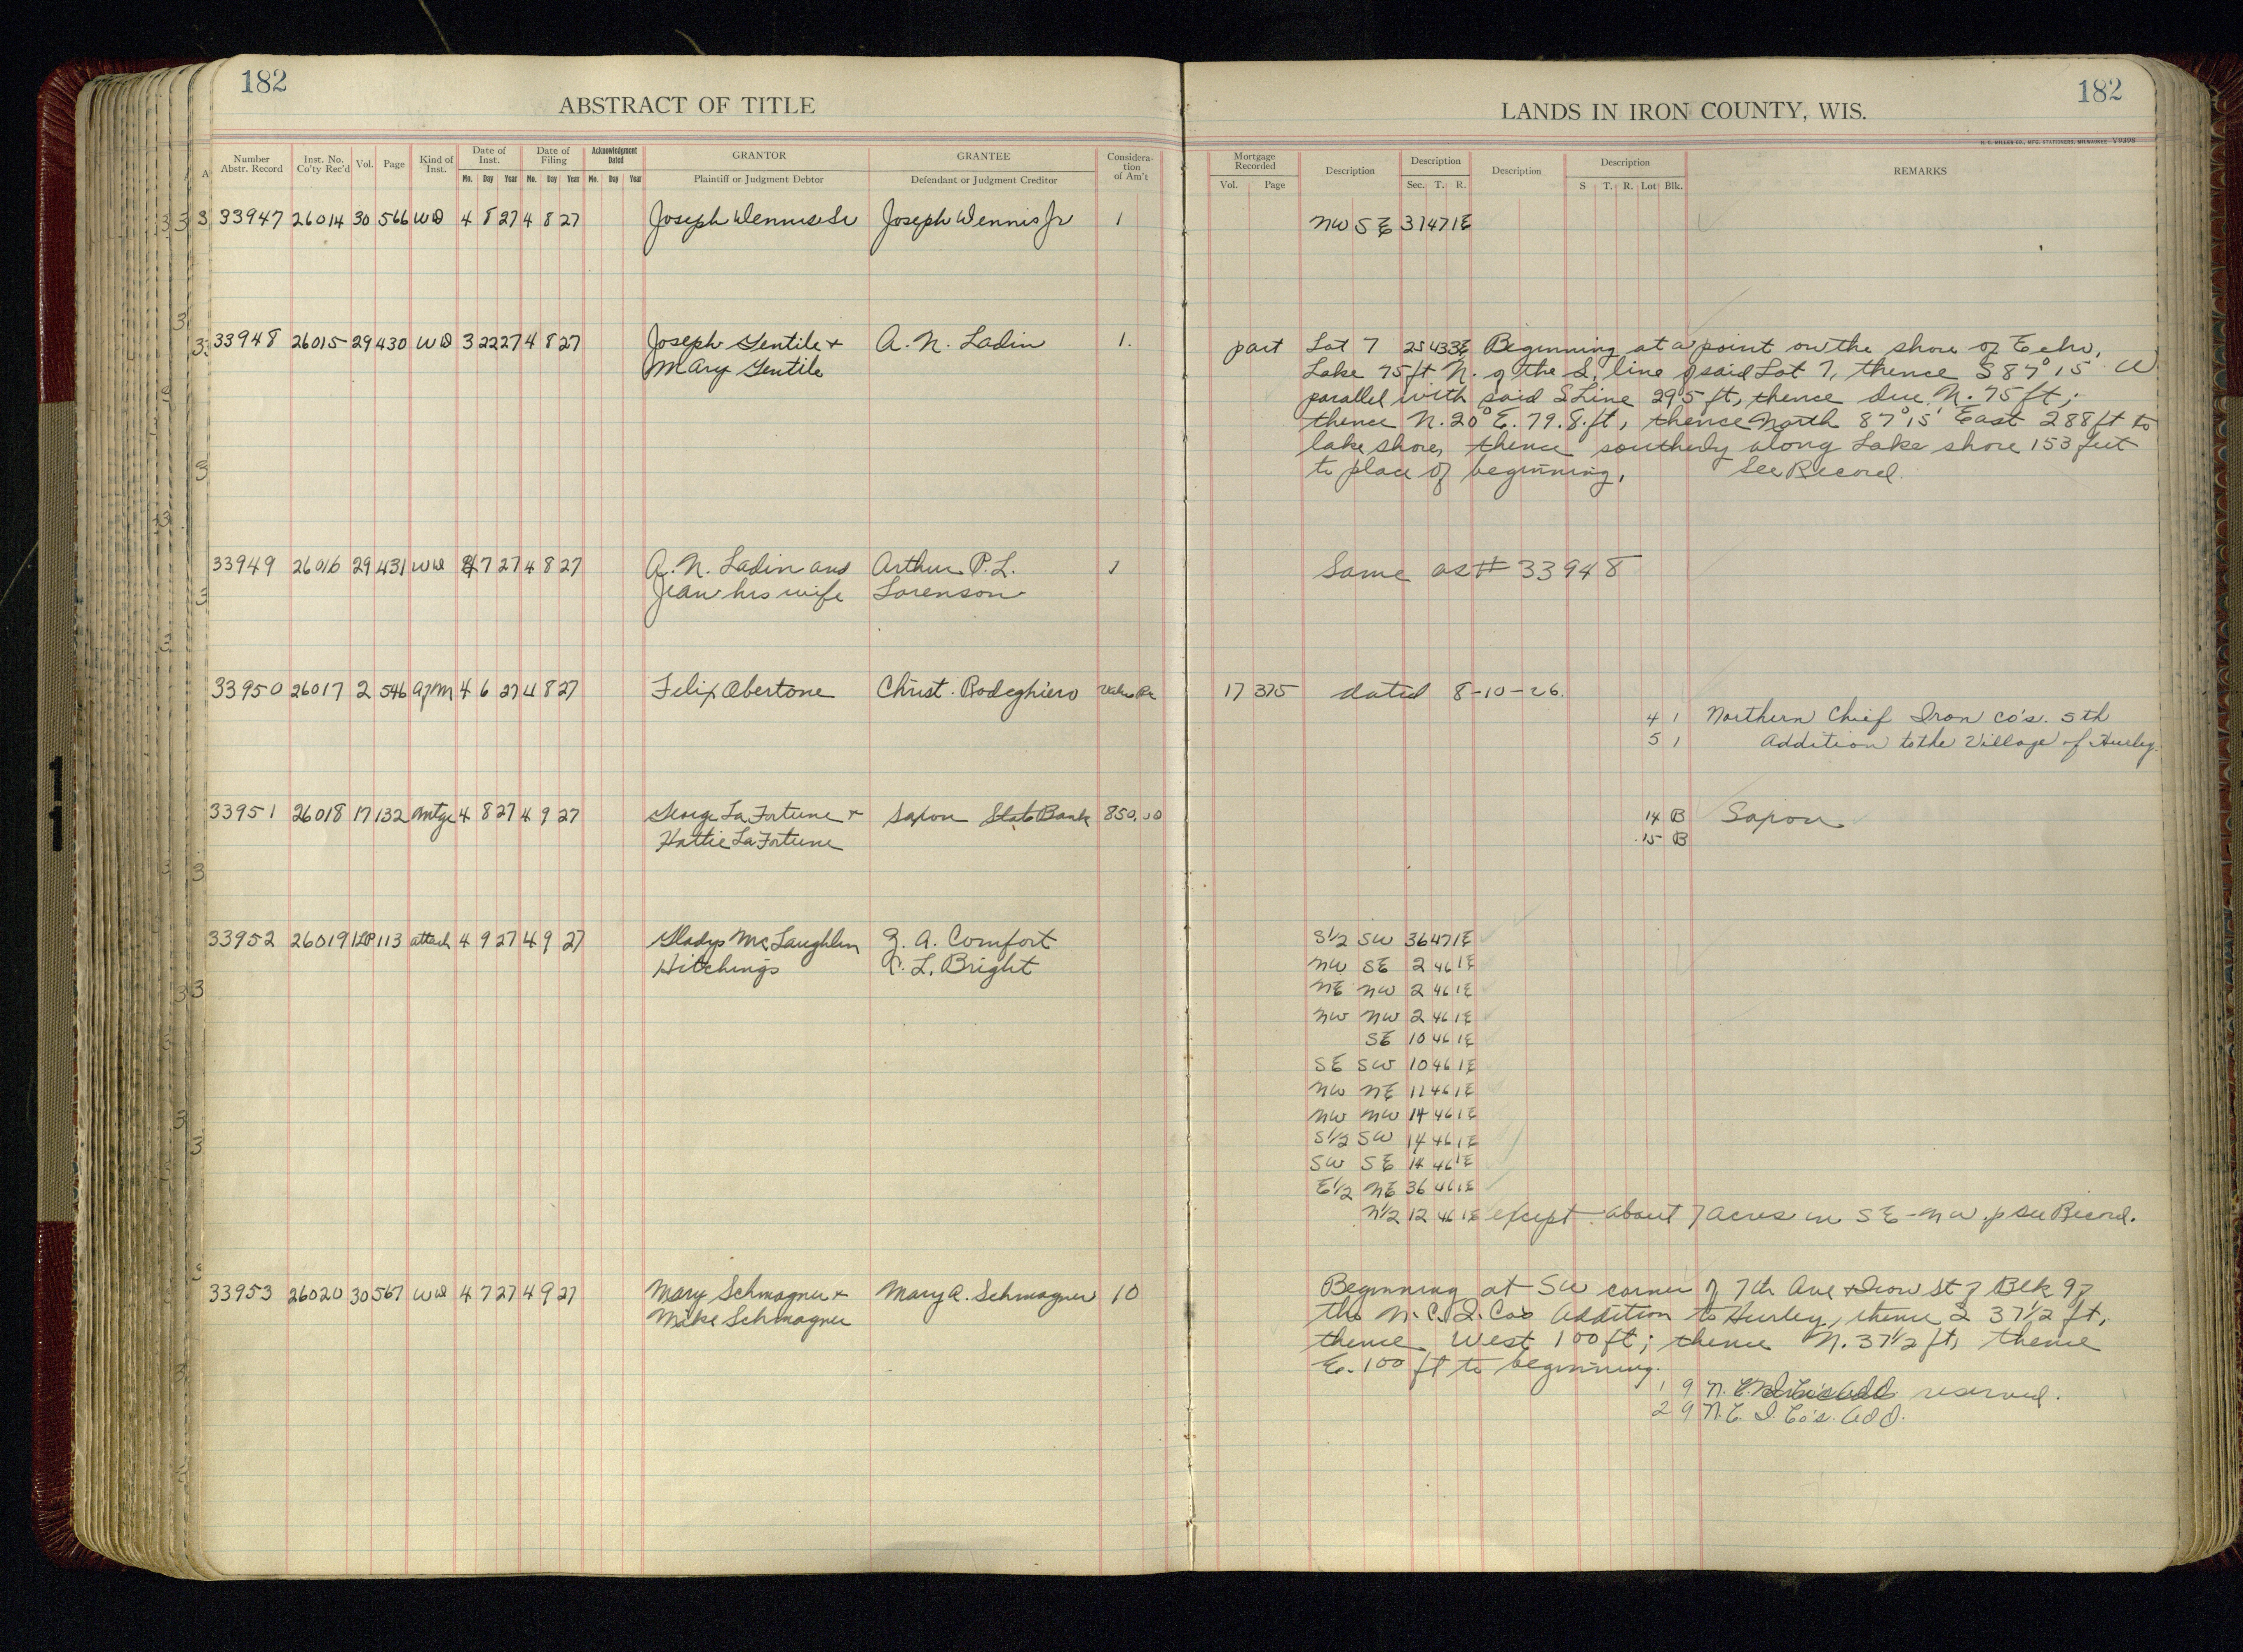 182
ABSTRACT OF TITLE
Number Abstr. Record | Inst. No. Co'ty Rec'd | Vol. | Page | Kind of Inst. | Date of Inst. Mo. Day Year | Date of Filing Mo. Day Year | Acknowledgment Dated Mo. Day Year | GRANTOR Plaintiff or Judgment Debtor | GRANTEE Defendant or Judgment Creditor | Consideration of Am't
33947 26014 30 566 WD 4 8 27 4 8 27 Joseph Wennis Sr Joseph Wennis Jr 1
33948 26015 29 430 WD 3 22 27 4 8 27 Joseph Gentile + A. N. Ladin 1.
Mary Gentile
33949 26016 29 431 WD 4 7 27 4 8 27 A. N. Ladin and Arthur P. L. 1
Jean his wife Lorenson
33950 26017 2 546 4 6 27 4 8 27 Felix Obertone Christ. Rodeghiero Value Re
33951 26018 17 132 Mtge 4 8 27 4 9 27 George La Fortune + Saxon State Bank 850.00
Hattie La Fortune
33952 26019 1LP 113 attach 4 9 27 4 9 27 Gladys McLaughlin G. A. Comfort
Hitchings L. Bright
33953 26020 30 567 WD 4 7 27 4 9 27 Mary Schmagner + Mary A. Schmagner 10
Mike Schmagner
182
LANDS IN IRON COUNTY, WIS.
H. C. MILLER CO., MFG. STATIONERS, MILWAUKEE V9396
Mortgage Recorded Vol. Page | Description | Description Sec. T. R. | Description | Description S T. R. Lot Blk. | REMARKS
NW SE 31 47 1E
part Lot 7 25 43 3E Beginning at a point on the shore of Echo,
Lake 75 ft N. of the S. line of said Lot 7, thence S 87° 15' W
parallel with said S Line 295 ft, thence due N. 75 ft;
thence N. 20° E. 79.8. ft, thence North 87° 15' East 288 ft to
lake shore, thence southerly along Lake shore 153 feet
to place of beginning, See Record.
Same as # 33948
17 375 dated 8-10-26.
4 1 Northern Chief Iron Co's. 5th
5 1 Addition to the Village of Hurley.
14 B Saxon
15 B
S1/2 SW 36 47 1E
NW SE 2 46 1E
NE NW 2 46 1E
NW NW 2 46 1E
SE 10 46 1E
SE SW 10 46 1E
NW NE 11 46 1E
NW NW 14 46 1E
S1/2 SW 14 46 1E
SW SE 14 46 1E
E1/2 NE 36 46 1E
N1/2 12 46 1E except about 7 acres in SE-NW. see Record.
Beginning at SW corner of 7th Ave + Iron St of Blk 9 of
the N. C. I. Co's Addition to Hurley, thence S 37 1/2 ft,
thence West 100 ft; thence N. 37 1/2 ft, thence
E. 100 ft to beginning.
1 9 N. reserved.
2 9 N. C. I. Co's. Add.